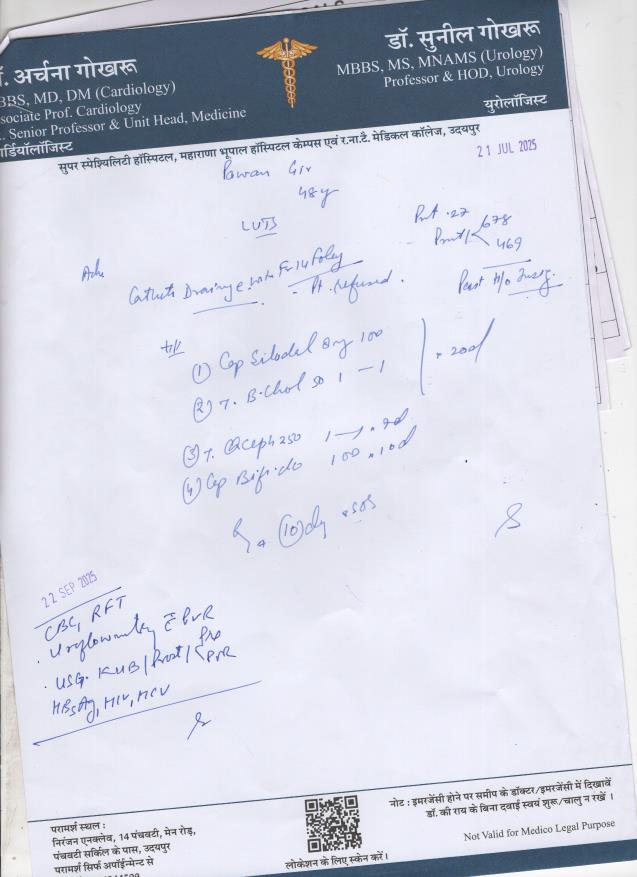 . अर्चना गोखरू
BBS, MD, DM (Cardiology)
ssociate Prof. Cardiology
. Senior Professor & Unit Head, Medicine
ार्डियॉलॉजिस्ट
डॉ. सुनील गोखरू
MBBS, MS, MNAMS (Urology)
Professor & HOD, Urology
युरोलॉजिस्ट
सुपर स्पेश्यिलिटी हॉस्पिटल, महाराणा भूपाल हॉस्पिटल केम्पस एवं र.ना.टै. मेडिकल कॉलेज, उदयपुर
21 JUL 2025
Pawan Gir
48 y
LUTS
678
469
Adv
Drainage Fr 14 Foley
- Pt. refused.
Past H/o
(1) Cap Silodal 8mg 100
(2) T. B.Chol 50 1 – 1
20d
(3) T. 250 1 – 1
(4) Cap Bifido 100 x 10d
(10) day SOS
22 SEP 2025
CBC, RFT
. Uroflowmetry c̄ PVR
. USG. KUB / Prost / Pre
PVR
HBsAg, HIV, HCV
परामर्श स्थल :
निरंजन एनक्लेव, 14 पंचवटी, मेन रोड़,
पंचवटी सर्किल के पास, उदयपुर
परामर्श सिर्फ अपॉईन्मेन्ट से
लोकेशन के लिए स्केन करें।
नोट : इमरजेंसी होने पर समीप के डॉक्टर/इमरजेंसी में दिखावें
डॉ. की राय के बिना दवाई स्वयं शुरू/चालु न रखें ।
Not Valid for Medico Legal Purpose